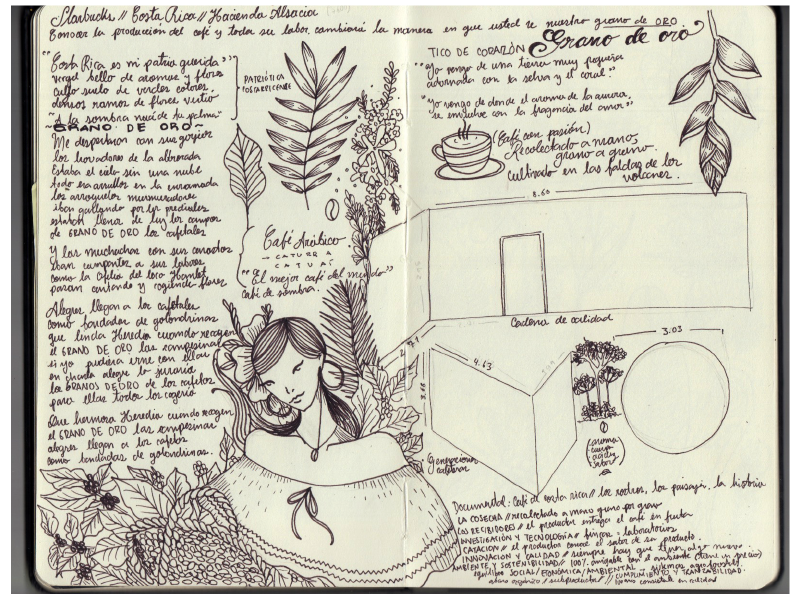 Starbucks // Costa Rica // Hacienda Alsacia
Conocer la producción del café y toda su labor cambiará la manera en que usted ve nuestro grano de ORO
"Costa Rica es mi patria querida"
vergel bello de aromas y flores
culto suelo de verdes colores
densos ramos de flores virtió
"A la sombra nací de tu palma"
PATRIÓTICA
COSTARRICENSE
~GRANO DE ORO~
Me despertaron con sus gorjeos
los trovadores de la alborada
Estaba el cielo sin una nube
todo era arrullos en la enramada
los arroyuelos murmuradores
iban gritando por los
estaban llenos de luz los campos
de GRANO DE ORO los cafetales
Y las muchachas con sus canastos
iban cumpartes a sus labores
como la Ofelia del loco Hamlet
pasan cantando y cogiendo flores
Alegres llegan a los cafetales
como bandadas de golondrinas
que linda Heredia cuando recogen
el GRANO DE ORO las campesinas
si yo pudiera irme con ellas
en charla alegre lo juraría
los GRANOS DE ORO de los cafetos
para ellas todos los cogería
Que hermosa Heredia cuando recogen
el GRANO DE ORO las campesinas
alegres llegan a los cafetos
como bandadas de golondrinas.
Café Arábico
- CATURRA
CATUAÍ
"El mejor café del mundo"
café de sombra.
TICO DE CORAZÓN
Grano de oro
"Yo vengo de una tierra muy pequeña
adornada con la selva y el coral"
"Yo vengo de donde el aroma de la aurora,
se envuelve con la fragancia del amor"
(Café con pasión)
Recolectado a mano,
grano a grano.
Cultivado en las faldas de los
volcanes.
8.60
Cadena de calidad
4.63
3.03
Generaciones
cafetaleras
(aroma
cuerpo
acidez
sabor)
Documental: Café de costa rica // los rostros, los paisajes, la historia
LA COSECHA // recolectado a mano grano por grano
LOS RECIBIDORES // el productor entrega el café en fruta
INVESTIGACIÓN Y TECNOLOGÍA // fincas = laboratorios
CATACIÓN // el productor conoce el sabor de su producto.
INNOVACIÓN Y CALIDAD // siempre hay que tener algo nuevo.
AMBIENTE Y SOSTENIBILIDAD // 100% amigable con el ambiente (tiene un precio)
equilibrio SOCIAL / ECONÓMICA / AMBIENTAL - sistemas agroforestales
abono orgánico / subproductos // CUMPLIMIENTO Y TRAZABILIDAD.